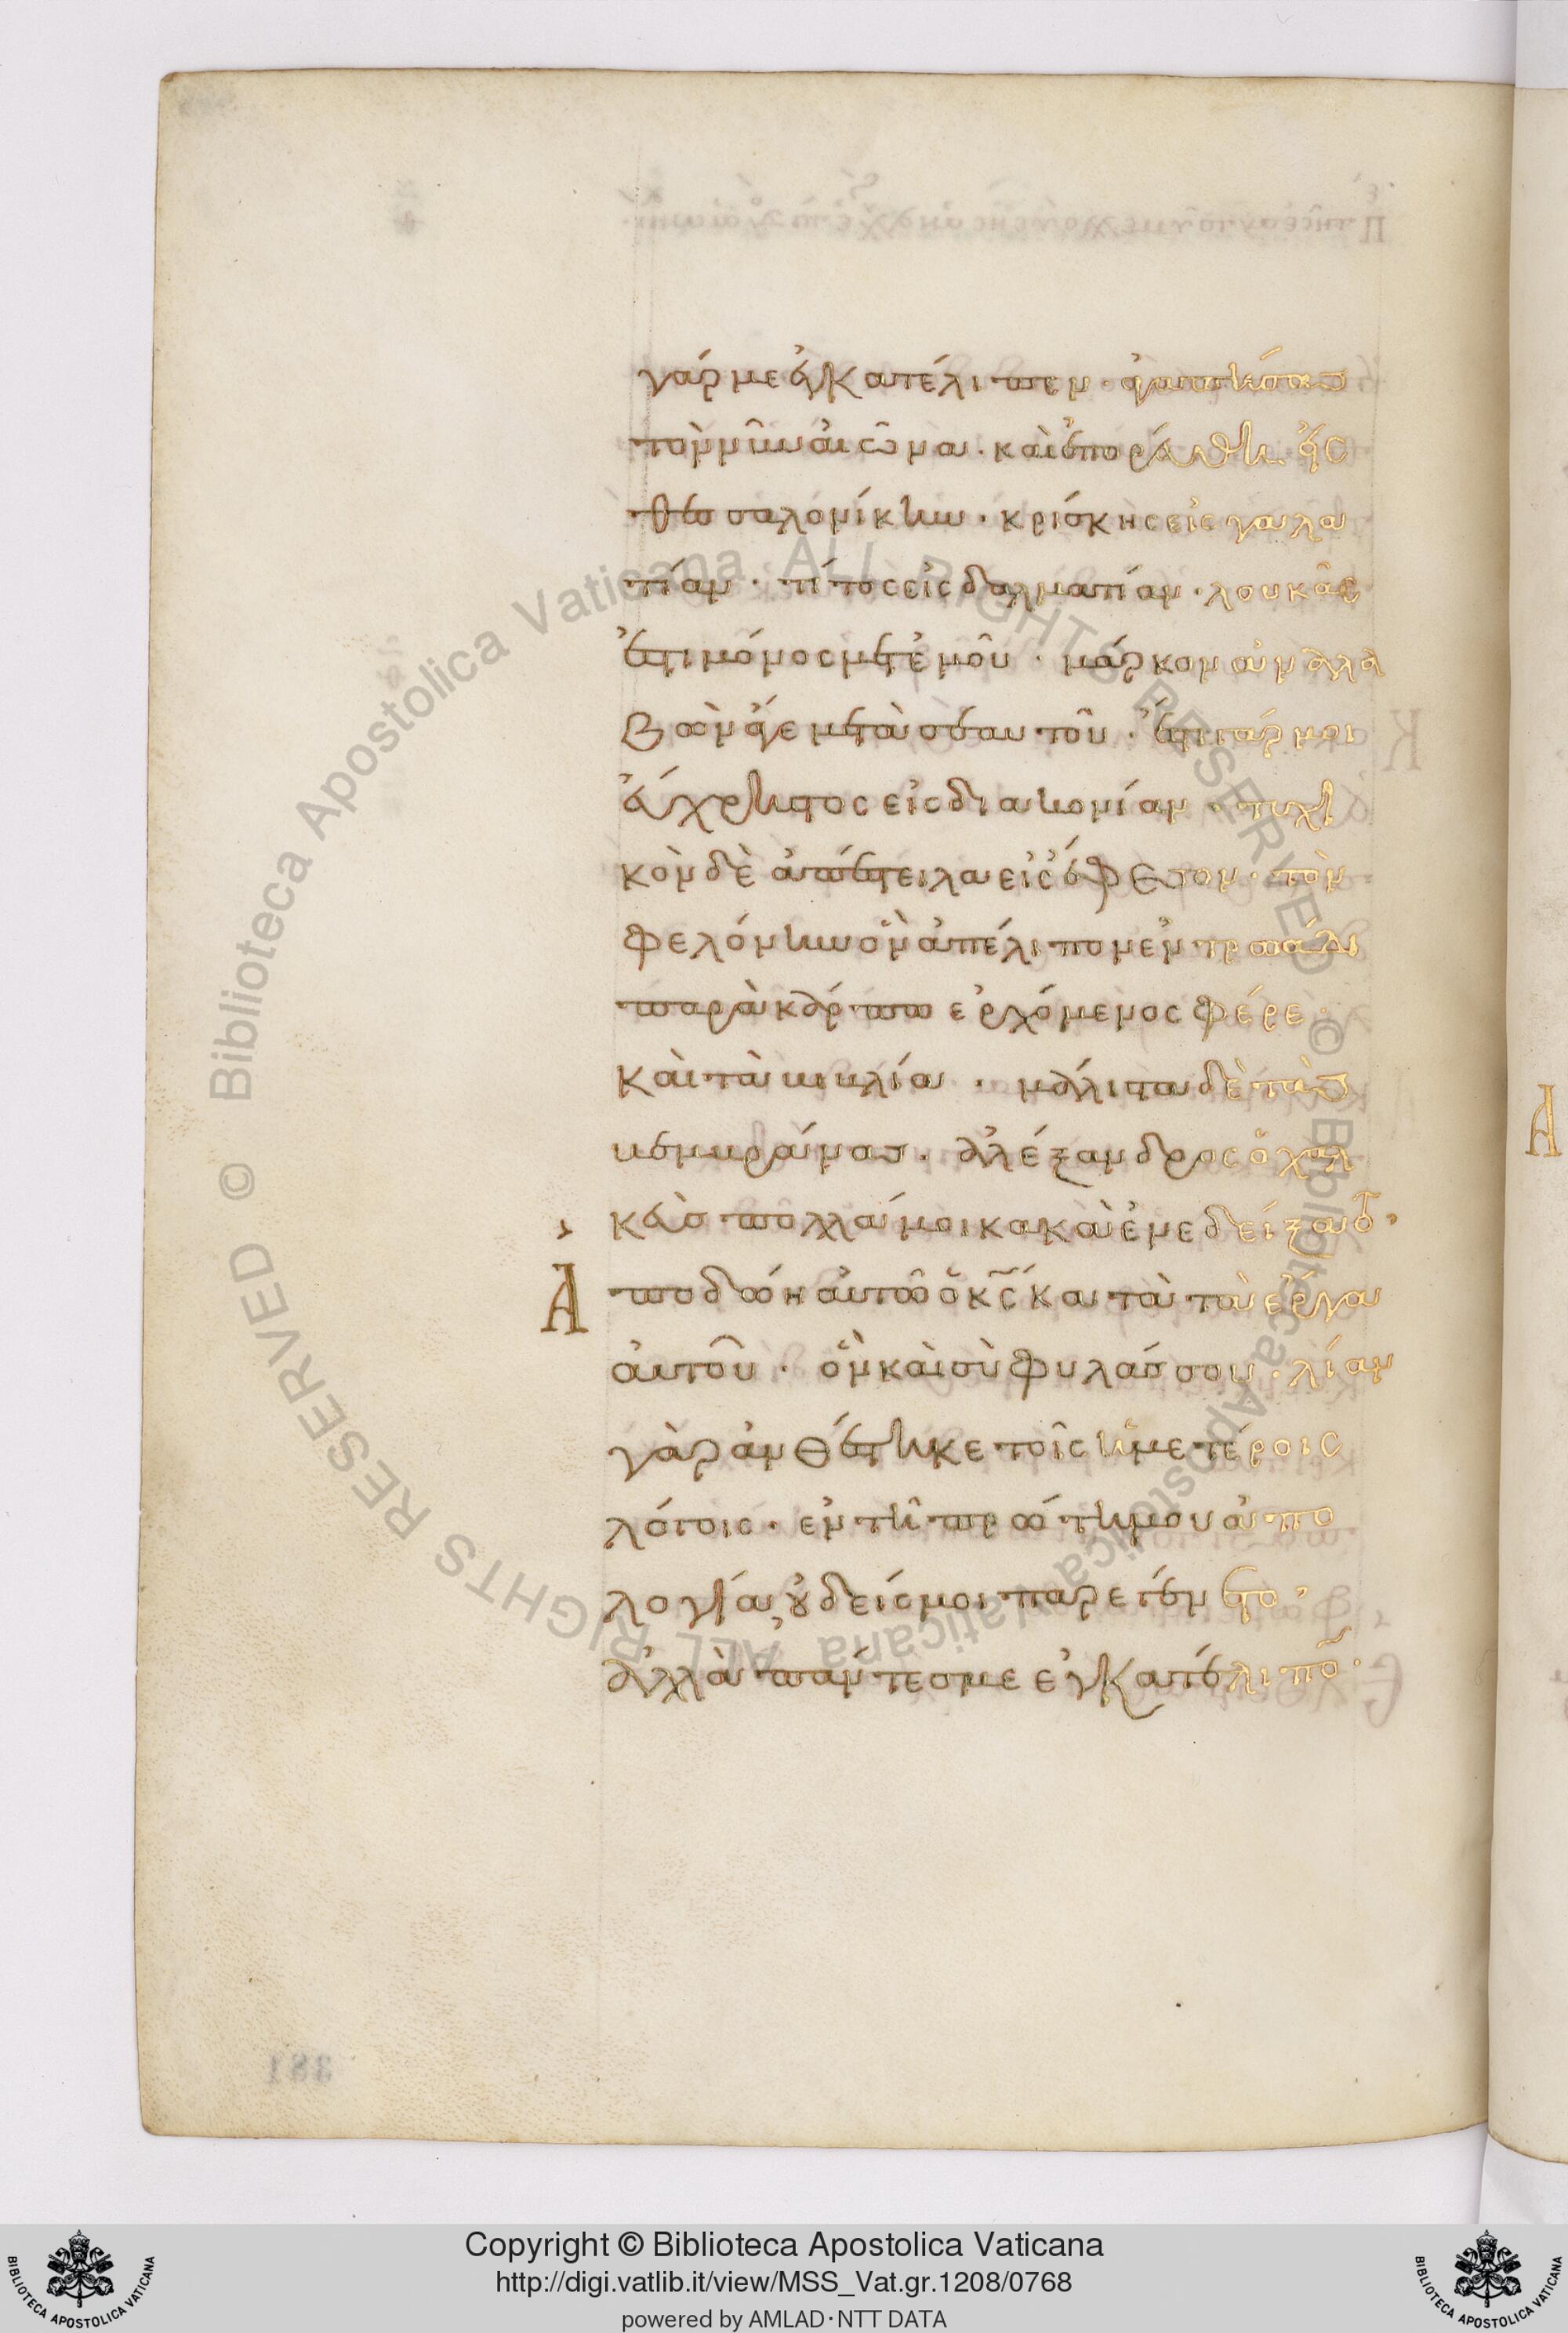 γάρ με ἐγκατέλιπεν · ἀγαπήσας
τὸν νῦν αἰῶνα · καὶ ἐπορεύθη εἰς
θεσσαλονίκην · κρίσκης εἰς γαλα
τίαν · τίτος εἰς δαλματίαν · λουκᾶς
ἐστι μόνος μετ' ἐμοῦ · μάρκον ἀναλα
βὼν ἄγε μετὰ σεαυτοῦ · ἔστι γάρ μοι
εὔχρηστος εἰς διακονίαν · τυχι
κὸν δὲ ἀπέστειλα εἰς ἔφεσον · τὸν
φελόνην ὃν ἀπέλιπον ἐν τρωάδι
παρὰ κάρπω ἐρχόμενος φέρε ·
καὶ τὰ βιβλία · μάλιστα δὲ τὰς
μεμβράνας · ἀλέξανδρος ὁ χαλ
κεὺς πολλά μοι κακὰ ἐνεδείξατο ·
Ἀποδώη αὐτῶ ὁ κς̅ κατὰ τὰ ἔργα
αὐτοῦ · ὃν καὶ σὺ φυλάσσου · λίαν
γὰρ ἀνθέστηκε τοῖς ἡμετέροις
λόγοις · ἐν τῆ πρώτη μου ἀπο
λογία οὐδείς μοι παρεγένετο ·
ἀλλὰ πάντες με ἐγκατέλιπον ·
Α
Copyright © Biblioteca Apostolica Vaticana
http://digi.vatlib.it/view/MSS_Vat.gr.1208/0768
powered by AMLAD·NTT DATA
BIBLIOTECA APOSTOLICA VATICANA
BIBLIOTECA APOSTOLICA VATICANA
© Biblioteca Apostolica Vaticana ALL RIGHTS RESERVED
© Biblioteca Apostolica Vaticana ALL RIGHTS RESERVED